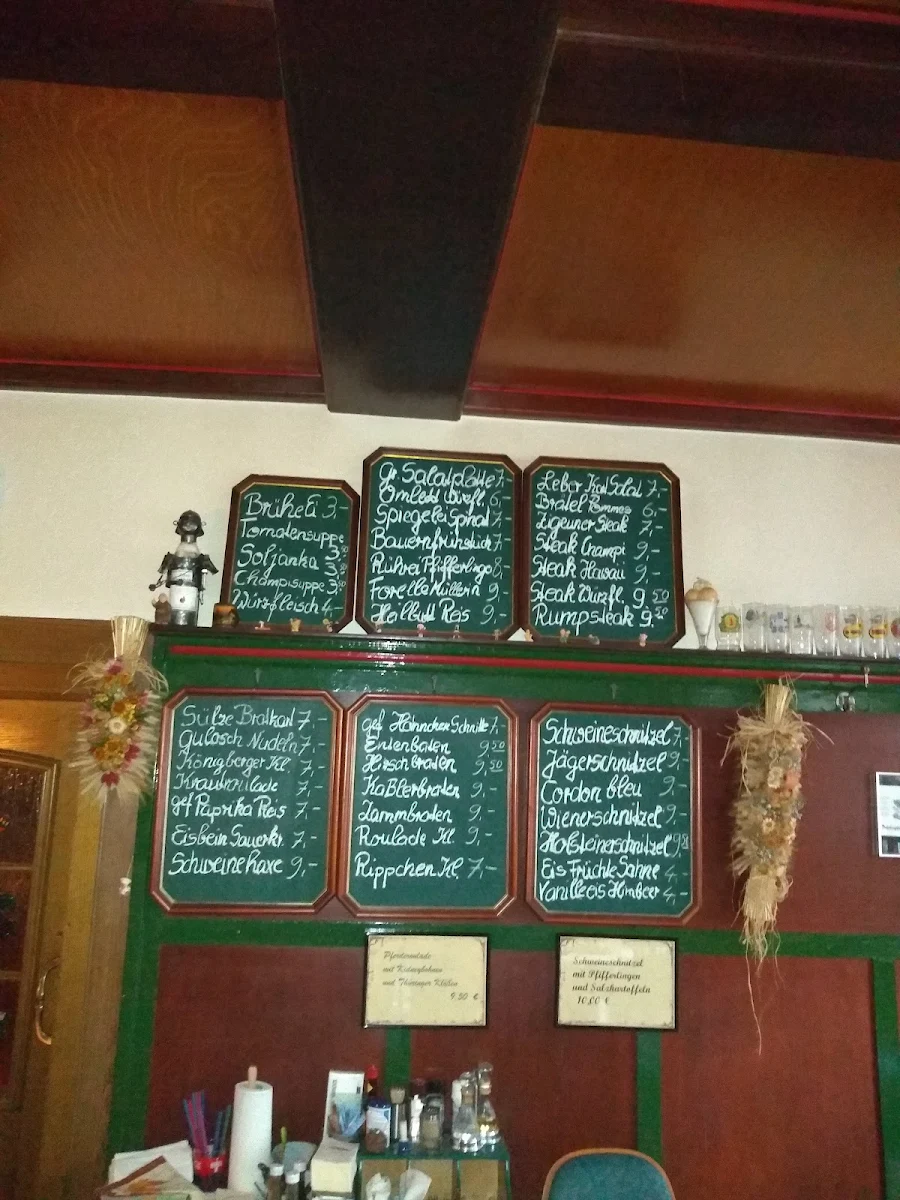 Brühe Ei 3,-
Tomatensuppe 3,50
Soljanka 3,50
Champisuppe 3,50
Würzfleisch 4,-
Gr Salatplatte 7,-
Omlett Würzfl. 6,-
Spiegelei Spinat 7,-
Bauernfrühstück 7,-
Rührei Pfifferlinge 8,-
Forelle Müllerin 9,-
Heilbutt Reis 9,-
Leber Kart Salat 7,-
Bratel Pommes 6,-
Zigeuner Steak 7,-
Steak Champi 9,-
Steak Hawaii 9,-
Steak Würzfl. 9,50
Rumpsteak 9,50
Sülze Bratkart 7,-
Gulasch Nudeln 7,-
Königberger Kl. 7,-
Krautroulade 7,-
gef Paprika Reis 7,-
Eisbein Sauerkr. 7,-
Schweinehaxe 9,-
gef Hähnchen Schnitte 7,-
Entenbraten 9,50
Hirschbraten 9,50
Kaßlerbraten 9,-
Lammbraten 9,-
Roulade Kl. 9,-
Rippchen Kl. 7,-
Schweineschnitzel 7,-
Jägerschnitzel 9,-
Cordon bleu 9,-
Wienerschnitzel 9,-
Holsteinerschnitzel
Eis Früchte Sahne 4,-
Vanilleeis Himbeer 4,-
Pferderoulade
mit Kaisergemüse
und Thüringer Klößen
9,50 €
Schweineschnitzel
mit Pfifferlingen
und Salzkartoffeln
10,00 €